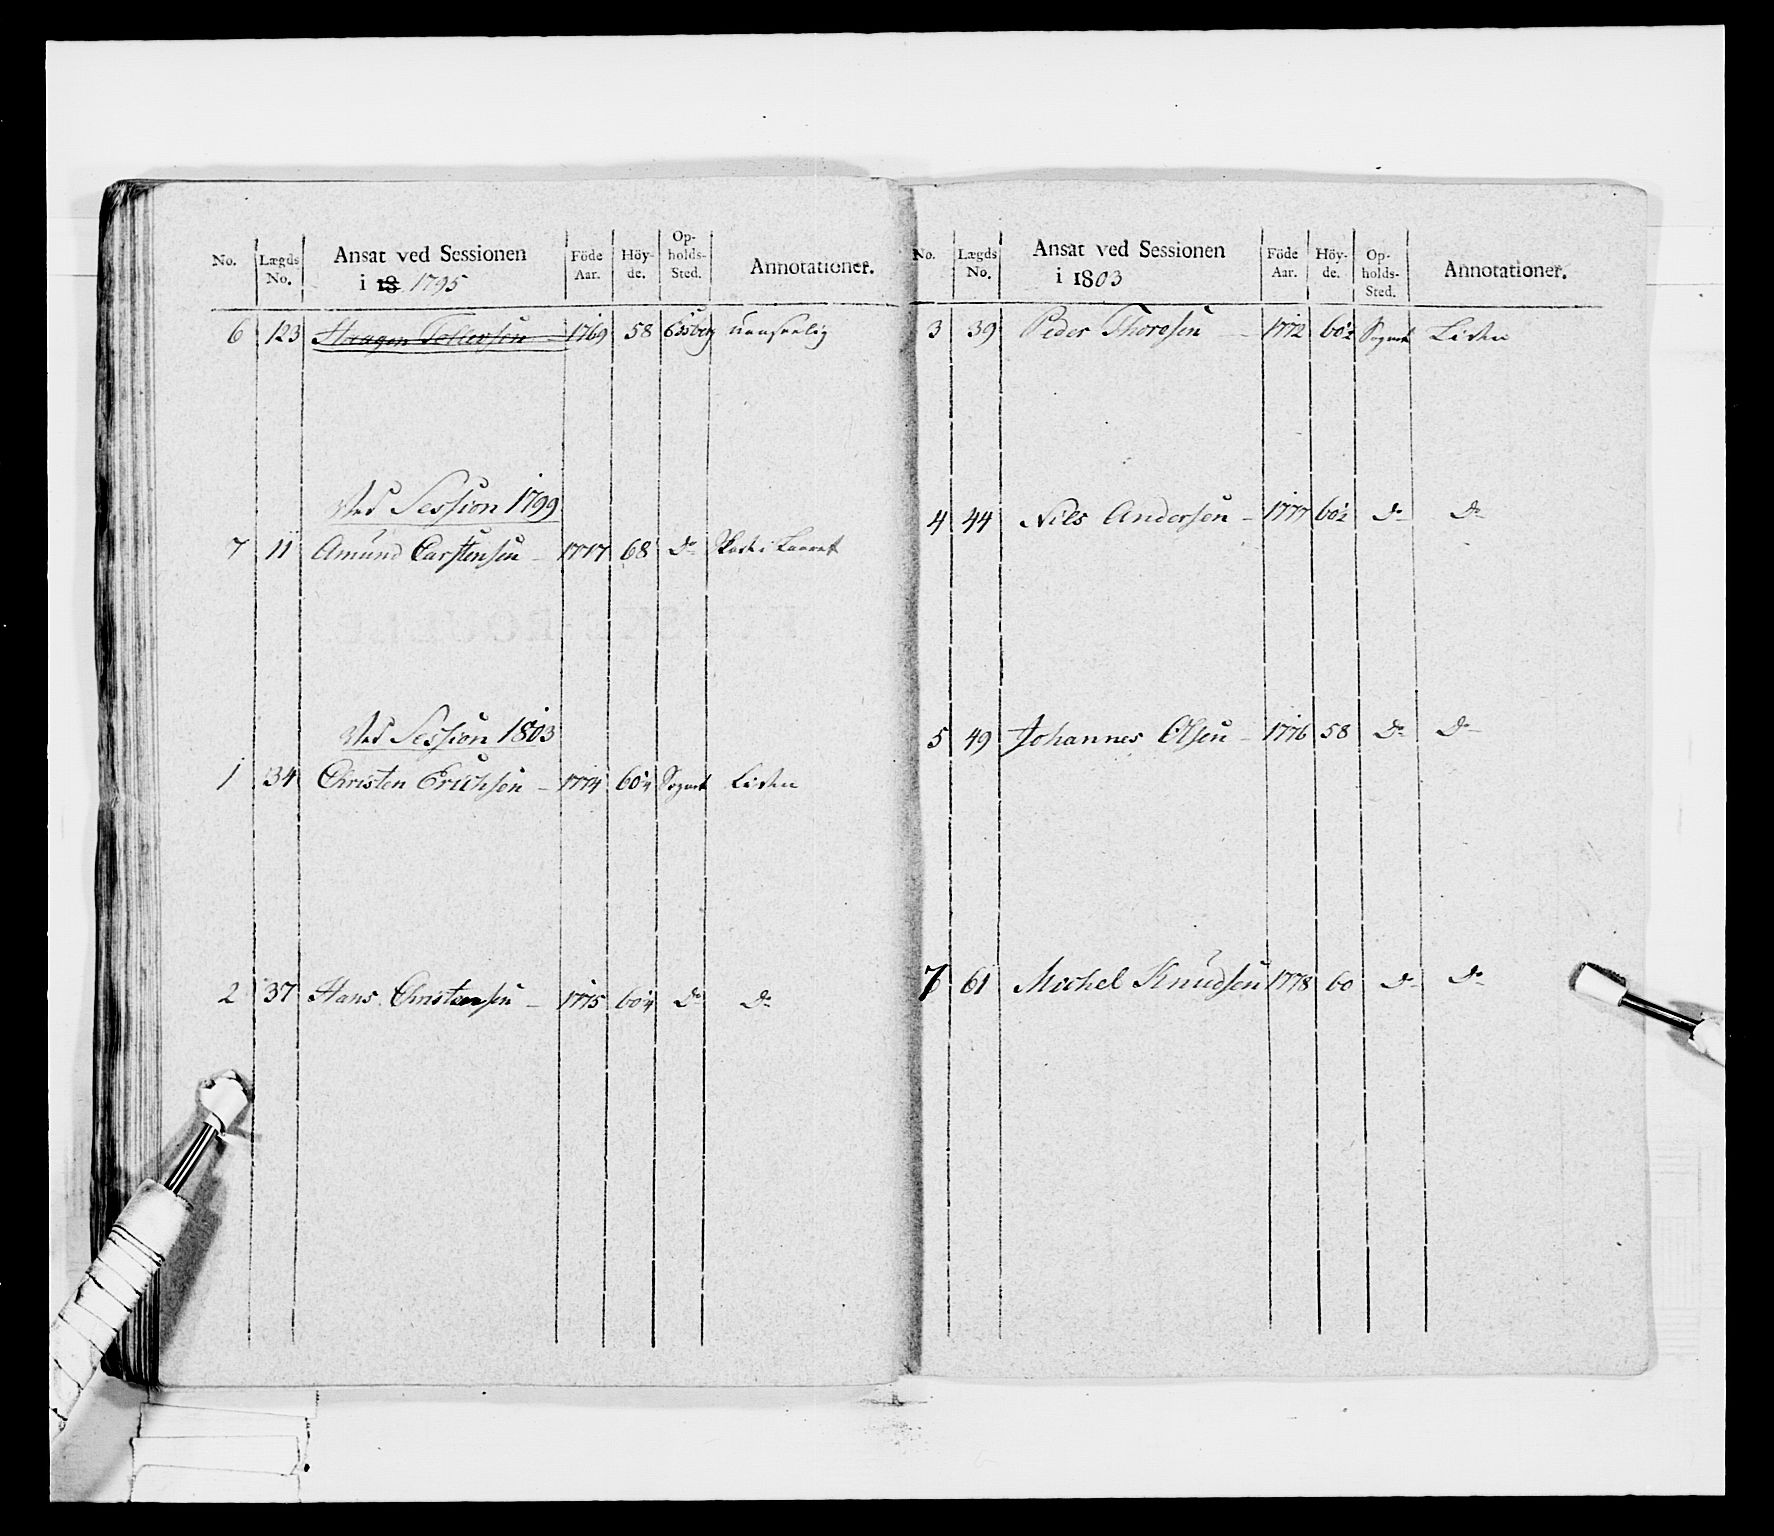 No. Lægds No. Ansat ved Sessionen i 18 1795 Föde Aar. Höy-de. Op-holds-Sted. Annotationer.
6 123 Haagen Tollersen 1769 58 Eisberg uanseelig
Ved Session 1799
7 11 Amund Carstensen – 1777 68 Do
Ved Session 1803
1 34 Christen Erichsen – 1774 60¼ Sognet Liden
2 37 Hans Christensen – 1775 60¼ Do Do
No. Lægds No. Ansat ved Sessionen i 1803 Föde Aar. Höy-de. Op-holds-Sted. Annotationer.
3 39 Peder Thoresen – 1772 60½ Sognet Liden
4 44 Nils Andersen – 1777 60½ Do Do
5 49 Johannes Olsen – 1776 58 Do Do
7 61 Michel Knudsen 1778 60 Do Do